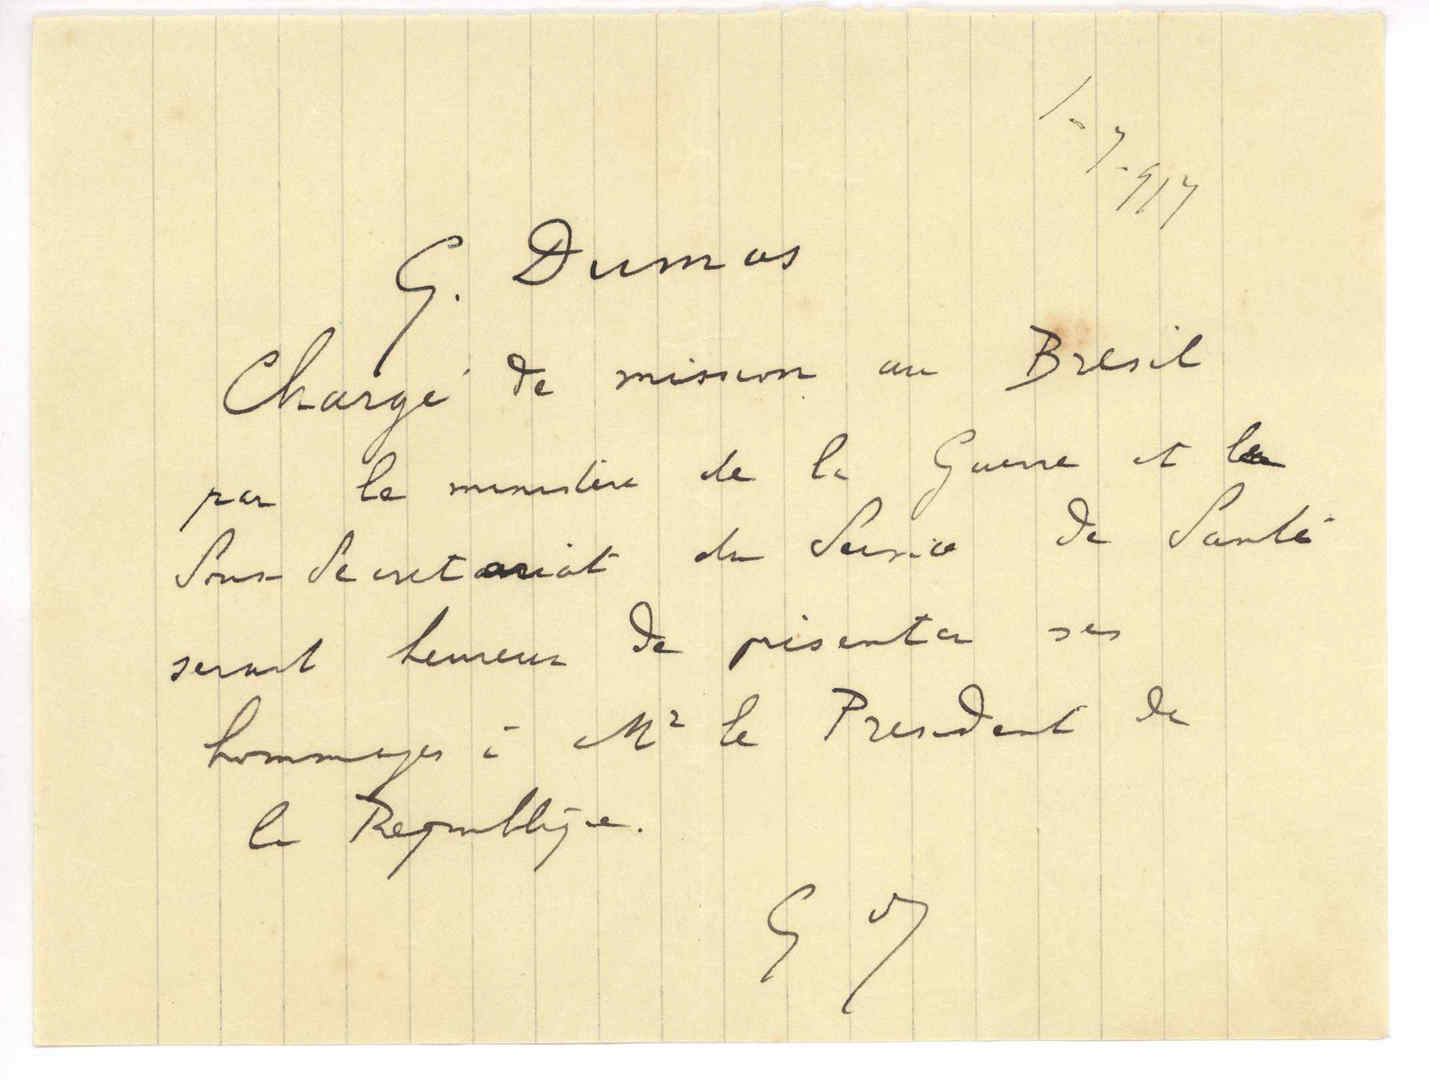 1-7-917
G. Dumas
Chargé de mission au Brésil
par le ministère de la Guerre et le
Sous-Secretariat du Service de Santé
serait heureux de présenter ses
hommages à Mr le President de
la Republique.
G D